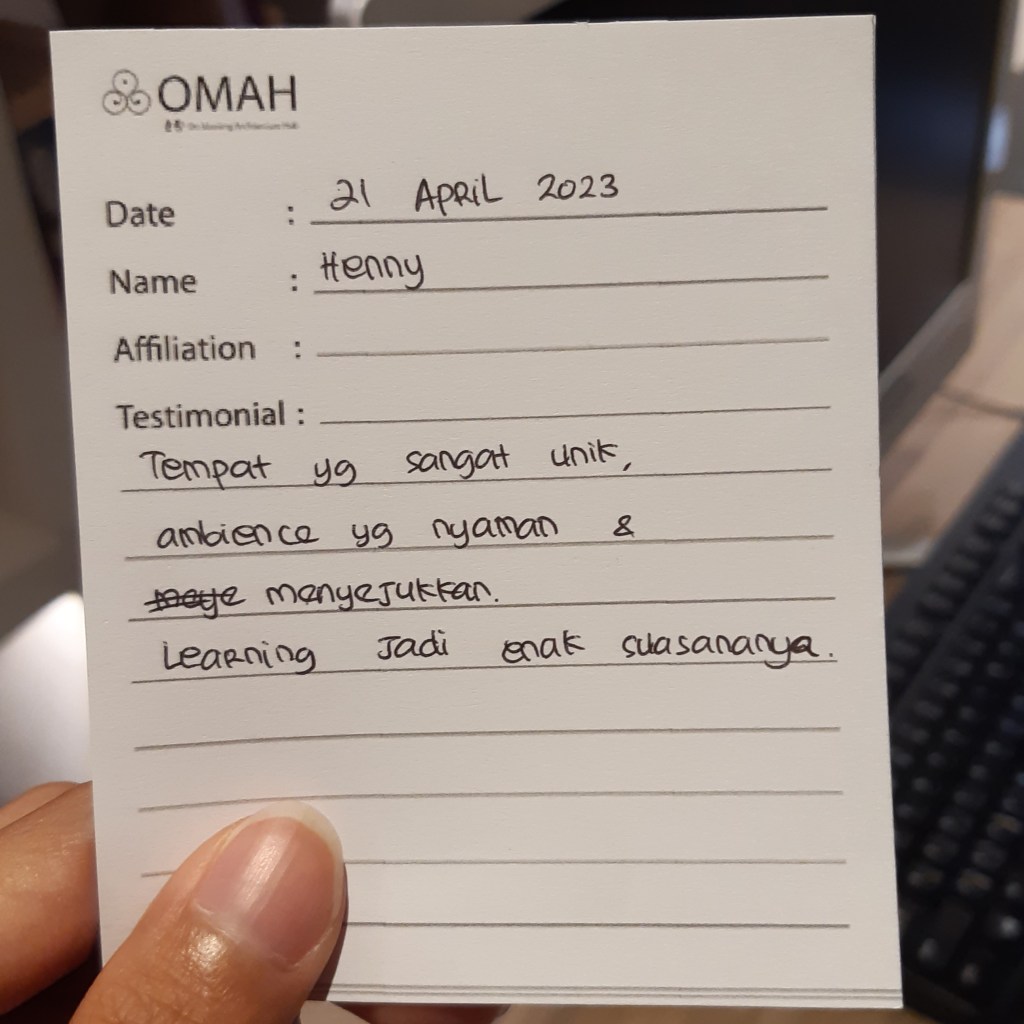 OMAH
Date : 21 APRIL 2023
Name : Henny
Affiliation :
Testimonial :
Tempat yg sangat unik,
ambience yg nyaman &
menyejukkan.
Learning Jadi enak suasananya.